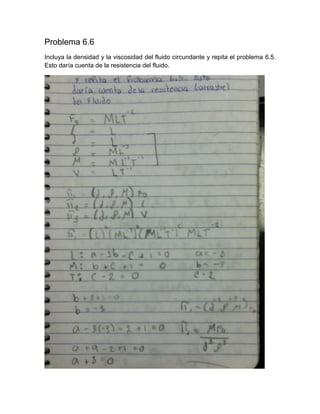 Problema 6.6
Incluya la densidad y la viscosidad del fluido circundante y repita el problema 6.5.
Esto daría cuenta de la resistencia del fluido.
y repita el Problema 6.5. Esto
daría cuenta de la resistencia (arrastre)
del Fluido
= MLT⁻²
= L
= L
ρ = ML⁻³
M = ML⁻¹T⁻¹
V = LT⁻¹
π₁ = (d, ρ, M) F₀
π₂ = (d, ρ, M) l
π₃ = (d, ρ, M) V
π₁ = (L)ᵃ (ML⁻³)ᵇ (ML⁻¹T⁻¹)ᶜ MLT⁻²
L: a - 3b - c + 1 = 0
M: b + c + 1 = 0
T: c - 2 = 0
b + 2 + 1 = 0
b = -3
a - 3(-3) - 2 + 1 = 0
a + 9 - 2 + 1 = 0
a + 8 = 0